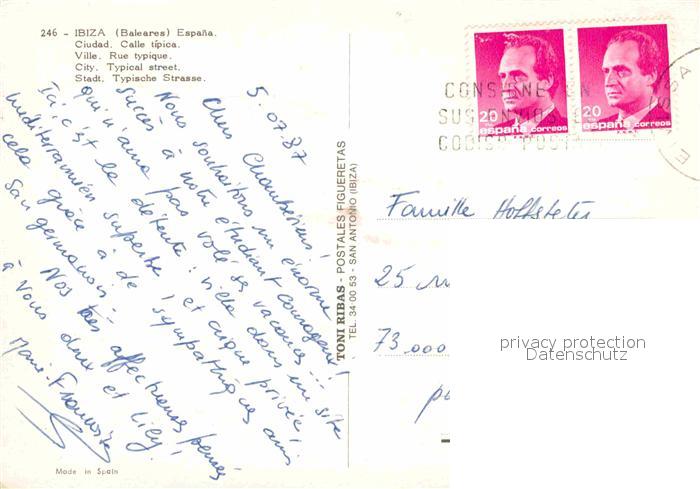 246 - IBIZA (Baleares) España.
Ciudad. Calle típica.
Ville. Rue typique.
City. Typical street.
Stadt. Typische Strasse.
5.07.87
Chers Chambériens!
Nous souhaitons un énorme
succès à notre étudiant courageux!
qui n'aura pas volé ses vacances...
Ici c'est la détente: villa dans un site
méditerranéen superbe, et crique privée!
cela grâce à de sympathiques amis
San germanois.
Nos très affectueuses pensées
à Vous deux et Lily!
Marie-Françoise
TONI RIBAS - POSTALES FIGUERETAS
TEL. 34 00 53 - SAN ANTONIO (IBIZA)
CONSIGNE EN
SUS ENVIOS EL
CODIGO POSTAL
20
españa correos
20
españa correos
Famille Hoffsteter
25
73.000
privacy protection
Datenschutz
Made in Spain